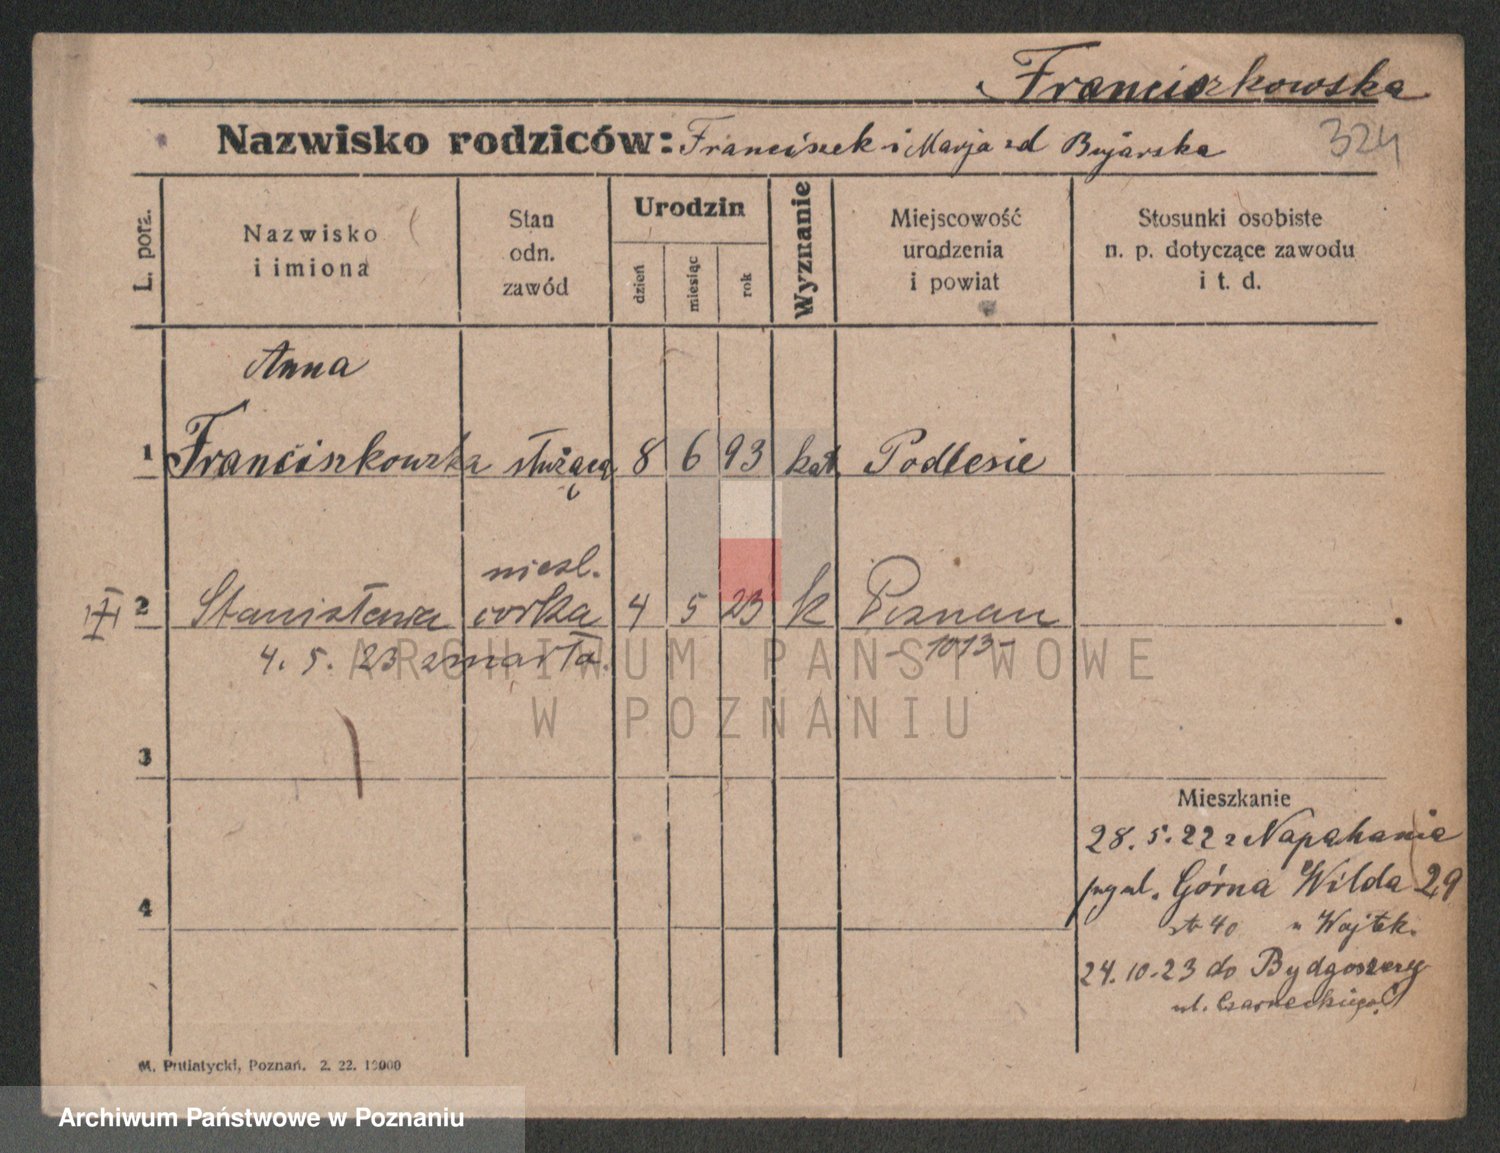 Franciszkowska
Nazwisko rodziców: Franciszek i Marja zd Bujarska
324
L. porz.
Nazwisko i imiona
Stan odn. zawód
Urodzin
dzień
miesiąc
rok
Wyznanie
Miejscowość urodzenia i powiat
Stosunki osobiste n. p. dotyczące zawodu i t. d.
Anna
1 Franciszkowska służąca 8 6 93 kat. Podlesie
nieśl.
2 Stanisława córka 4 5 23 k Poznań
4. 5. 23 zmarła. -1013-
3
Mieszkanie
28. 5. 22 z
4
Górna Wilda 29
40 u Wojtk.
24.10.23 do Bydgoszczy
ul. Czarneckiego
M. Putiatycki, Poznań. 2. 22. 10000
ARCHIWUM PAŃSTWOWE
W POZNANIU
Archiwum Państwowe w Poznaniu